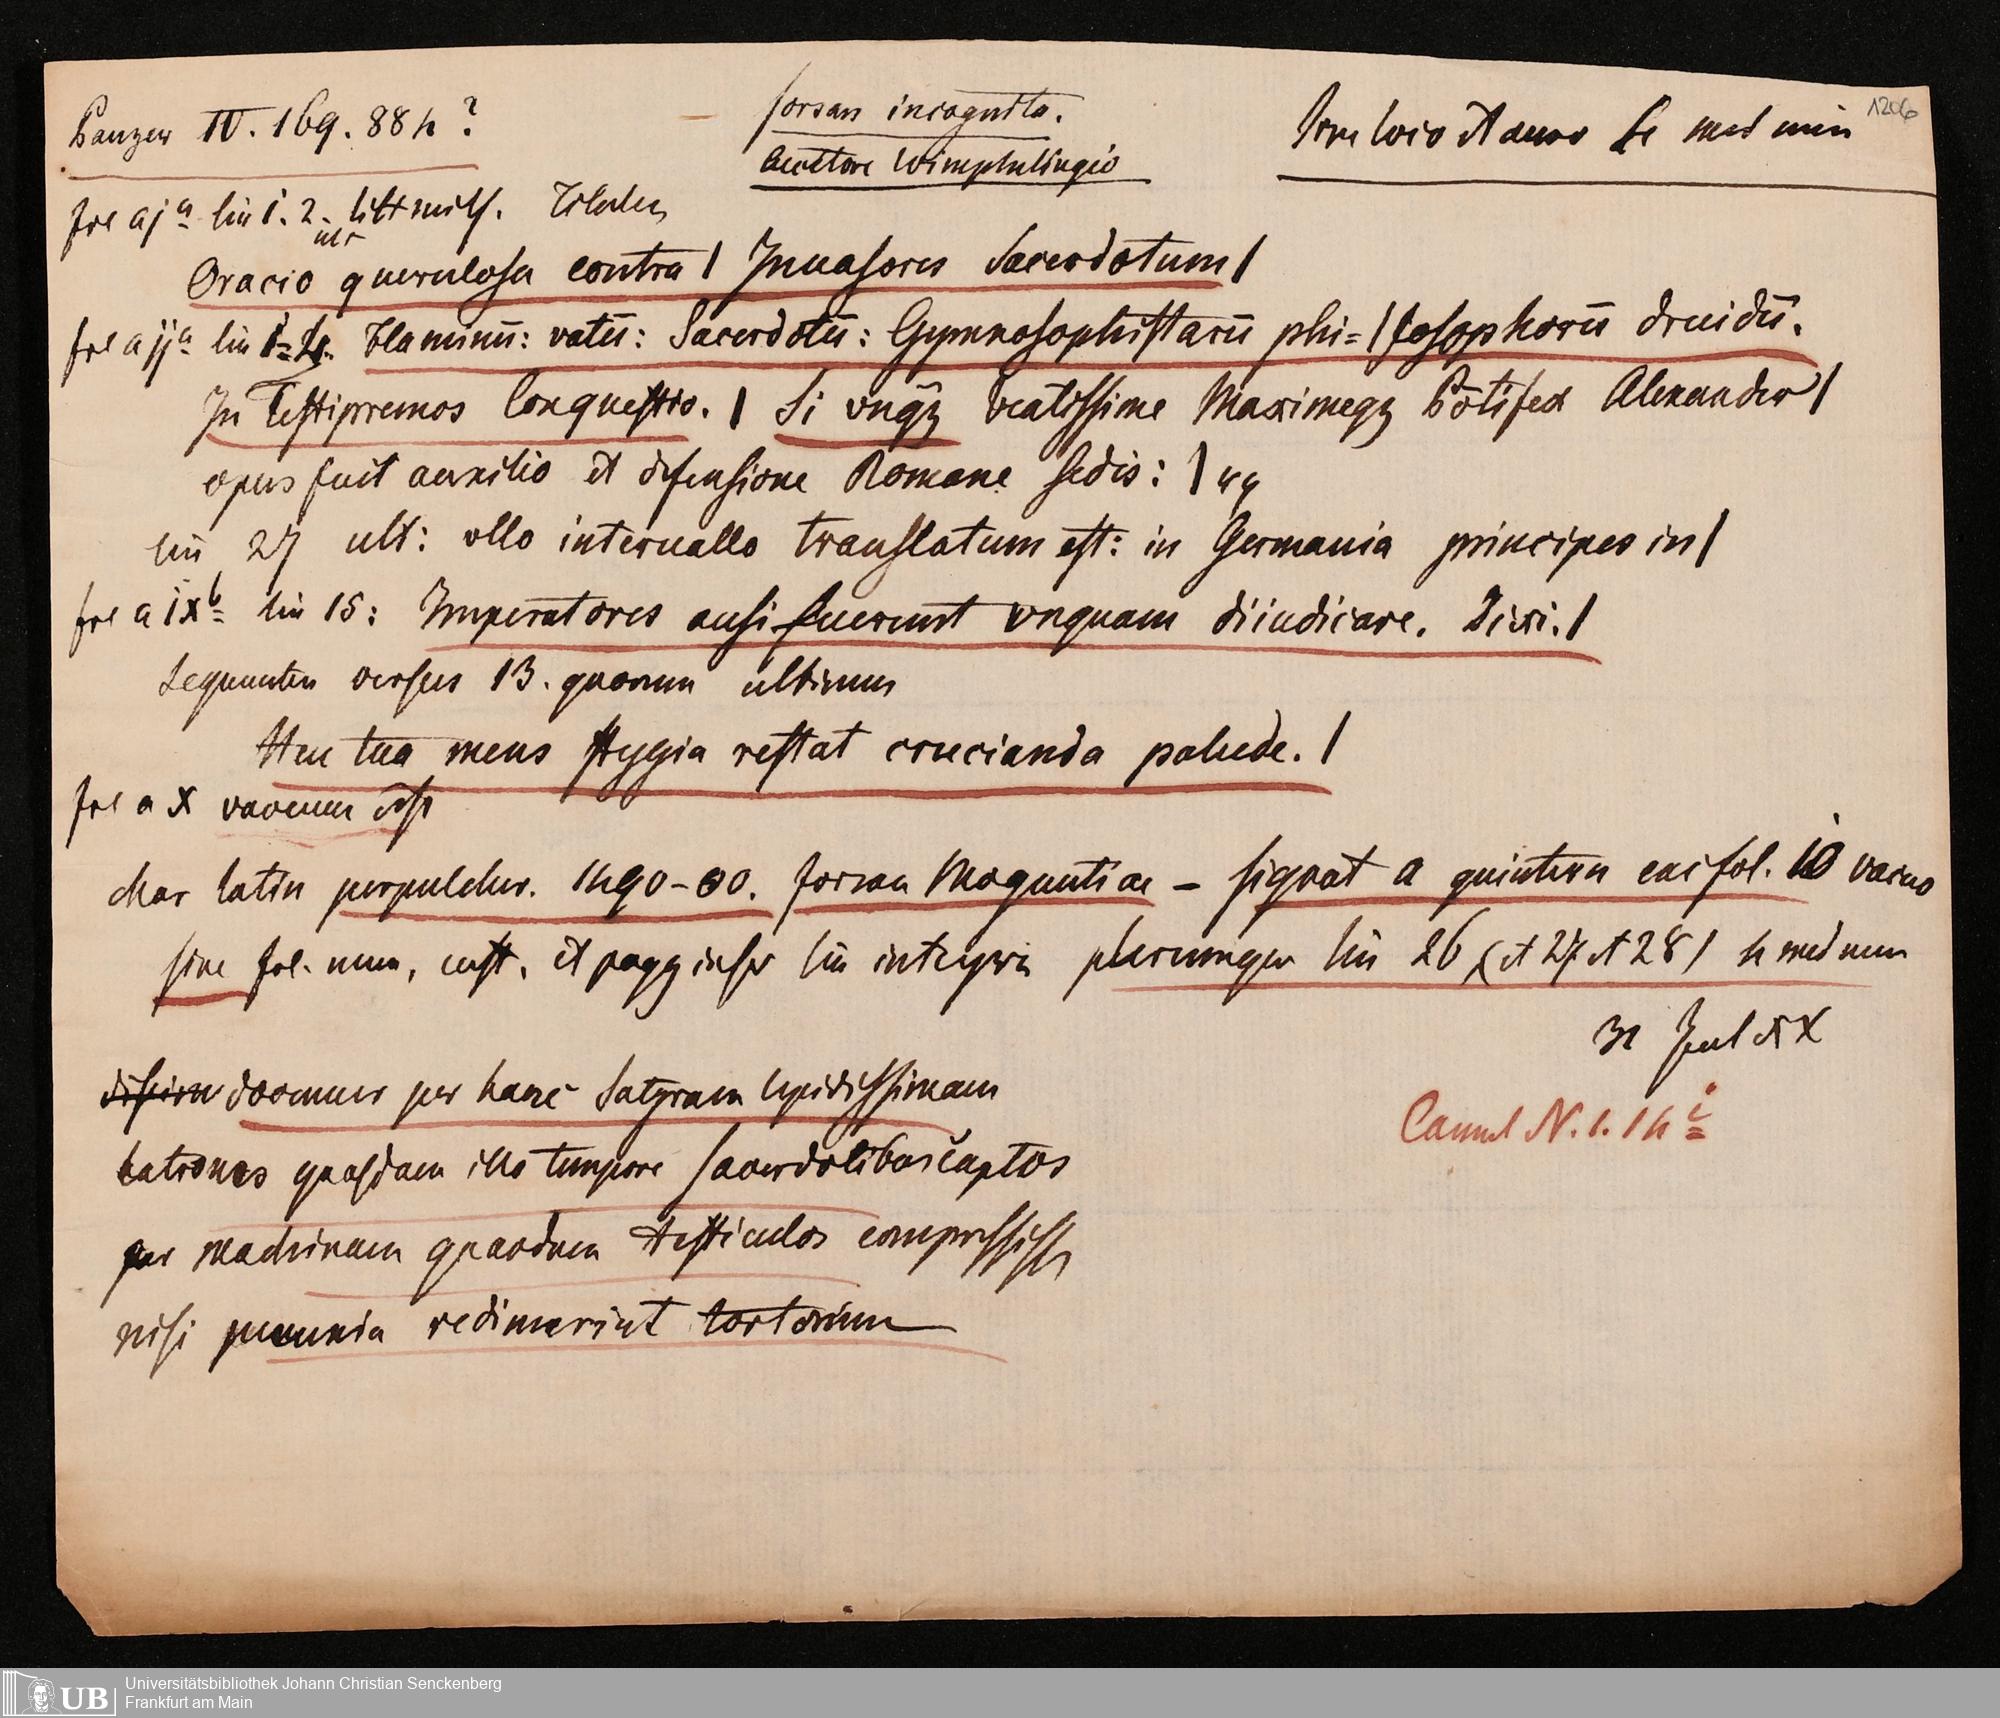 Panzer IV. 169. 884?
forsan incognita.
Auctore Wimphelingio
sine loco et anno 4 med min
1206
fol aja lin 1. 2. litt miss. Titulus
Oracio querulosa contra | Inuasores Sacerdotum |
fol a ija lin 1-4. Flaminū: vatū: Sacerdotū: Gymnosophistarū phi=|losophorū druidū.
In Testipremos Conquestio. | Si vnqȝ beatissime Maximeqȝ Pōtifex Alexander |
opus fuit auxilio et defensione Romane sedis: |
lin 27 ult: ullo interuallo translatum est: in Germania principes in |
fol a ixb lin 15: Imperatores ausi fuerunt vnquam diiudicare. Dixi. |
Sequuntur versus 13. quorum ultimus
Heu tua mens stygia restat crucianda palude. |
fol a x vacuum est
char latin perpulcher. 1490-00. forsan Moguntiae – signat a quintern eas fol. 10 vacuo
sine fol. num, cust. et pagg inscr lin integris plerumque lin 26 (et 27 et 28) 4 med min
31 Jul
docemur per hanc Satyram lepidissimam
latrones quosdam illo tempore sacerdotibus captos
per machinam quandam testiculos compressisse
nisi pecunia redimerint
N. 1. 14
Universitätsbibliothek Johann Christian Senckenberg
UB Frankfurt am Main